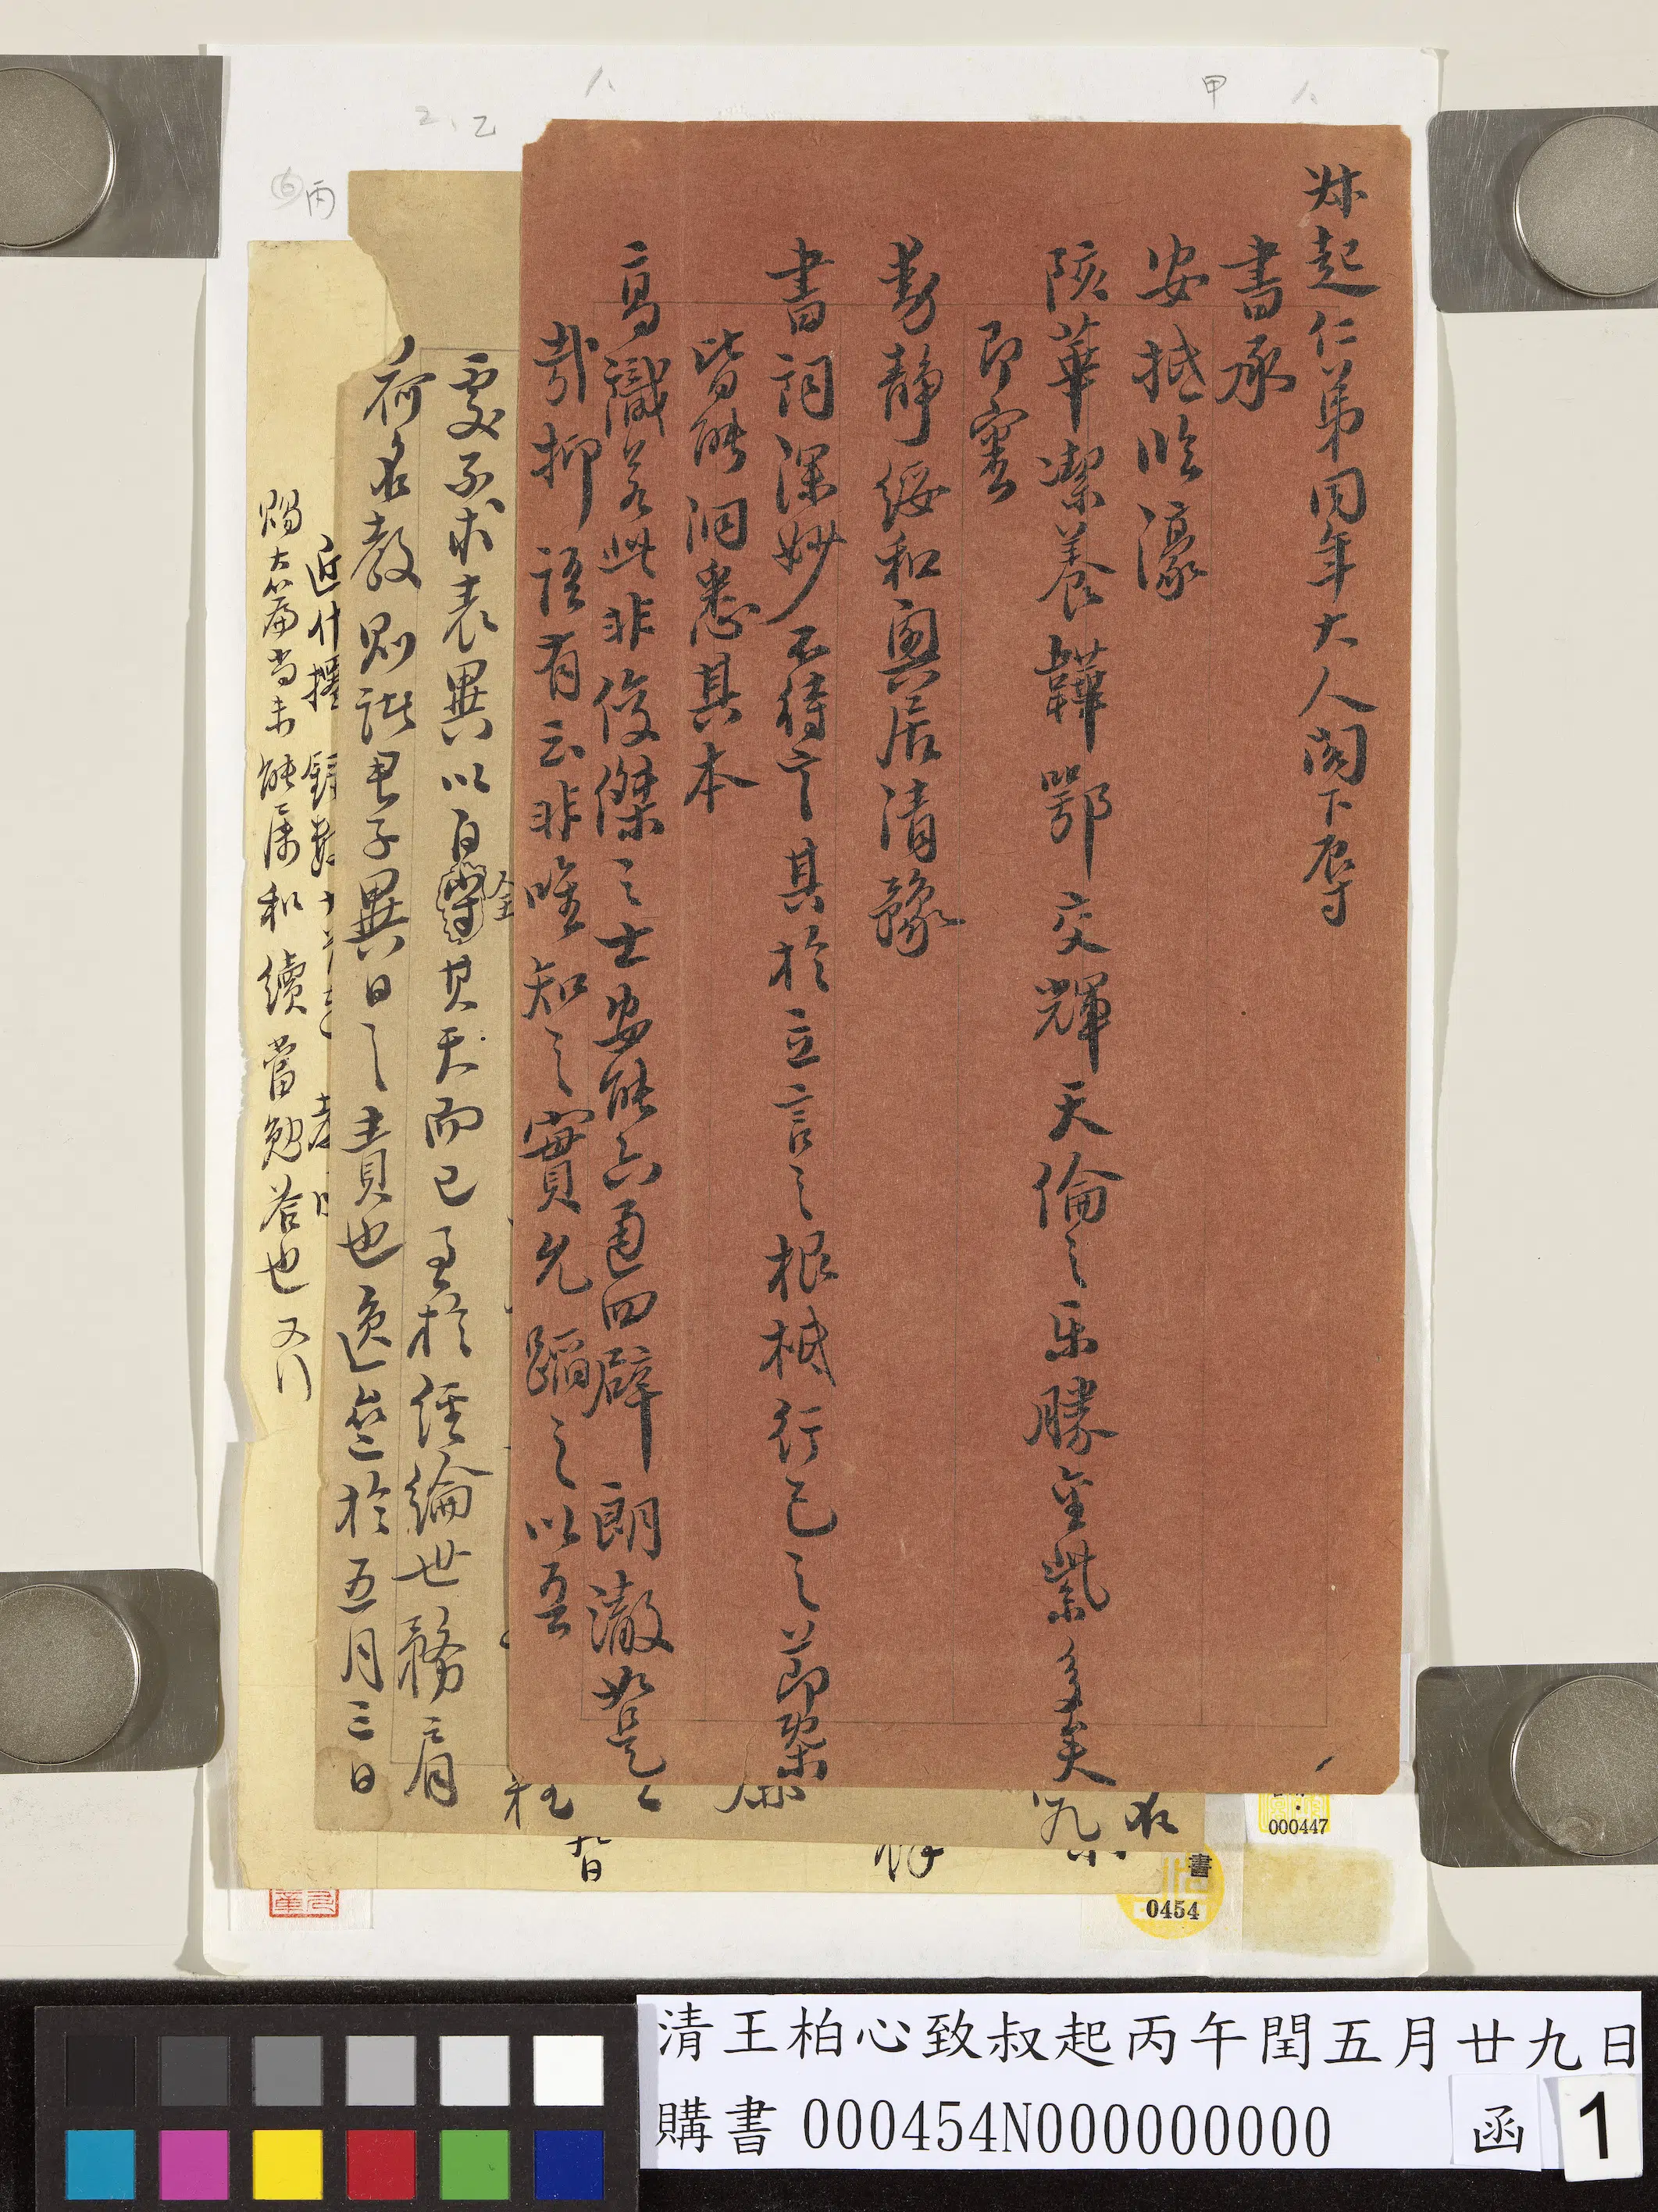 叔起仁弟同年大人閣下辱
書承
安抵臨濠
陔華潔養韡鄂交輝天倫之樂勝金紫多矣
即審
勛靜綏和輿居清豫
書詞深妙不待言其於立言之根柢行己之節槩
皆能洞悉其本
高識若此非俊傑之士安能六通四辟朗澈如是
哉抑語有云非唯知之實允蹈之以吾
處不求表異以自全其天而已至於經綸世務肩
荷名教則諸君子異日之責也逸無於五月三日
近什
賜大篇尚未能屬和續當勉答也又行
甲
乙
丙
000447
書
0454
清王柏心致叔起丙午閏五月廿九日
購書 000454N000000000
函
1